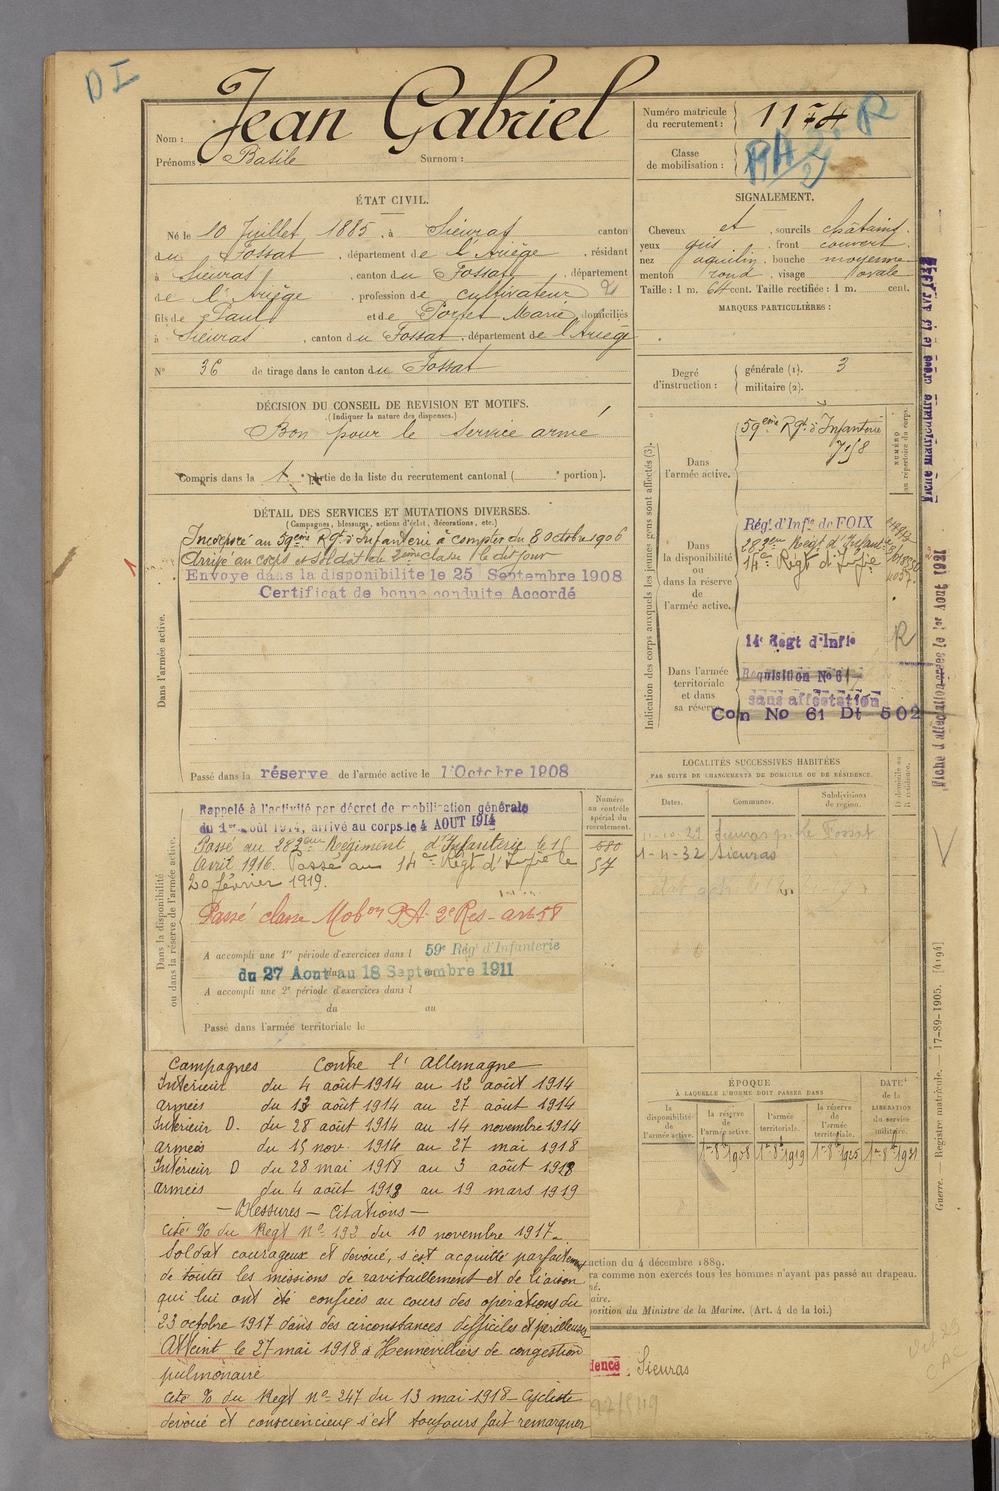 D I
Jean Gabriel
Nom :
Prénoms : Basile Surnom :
Numéro matricule
du recrutement : 1174
R
Classe
de mobilisation :
ÉTAT CIVIL.
Né le 10 Juillet 1885, à Sieuras canton
du Fossat, département de l'Ariège, résidant
à Sieuras, canton du Fossat, département
de l'Ariège, profession de cultivateur
fils de Paul et de Portet Marie domiciliés
à Sieuras, canton du Fossat, département de l'Ariège
N° 36 de tirage dans le canton du Fossat
DÉCISION DU CONSEIL DE REVISION ET MOTIFS.
(Indiquer la nature des dispenses.)
Bon pour le service armé
Compris dans la 1 partie de la liste du recrutement cantonal ( portion).
SIGNALEMENT.
Cheveux et, sourcils châtains.
yeux gris, front couvert
nez aquilin, bouche moyenne
menton rond, visage ovale
Taille : 1 m. 64 cent. Taille rectifiée : 1 m. cent.
MARQUES PARTICULIÈRES :
Degré
d'instruction :
générale (1). 3
militaire (2).
DÉTAIL DES SERVICES ET MUTATIONS DIVERSES.
(Campagnes, blessures, actions d'éclat, décorations, etc.)
Dans l'armée active.
Incorporé au 59ème Rgt d'Infanterie à compter du 8 octobre 1906
Arrivé au corps et soldat de 2ème classe le dit jour
Envoyé dans la disponibilité le 25 Septembre 1908
Certificat de bonne conduite Accordé
Passé dans la réserve de l'armée active le 1 Octobre 1908
Indication des corps auxquels les jeunes gens sont affectés (3).
NUMÉRO
au répertoire du corps.
Dans
l'armée active.
59ème Rgt d'Infanterie
Dans
la disponibilité
ou
dans la réserve
de
l'armée active.
Régt d'Infie de FOIX
283eme Régt d'Infant
14e Régt d'Infie
Dans l'armée
territoriale
et dans
sa réserve
14e Regt d'Infie
R
Requisition No 61
sans affectation
Con No 61 Dt 502
Fiche d'affectation créée le 1er Aout 1921
Dans la disponibilité
ou dans la réserve de l'armée active.
Numéro
au contrôle
spécial du
recrutement.
Rappelé à l'activité par décret de mobilisation générale
du 1er août 1914, arrivé au corps le 4 AOUT 1914
Passé au 283eme Régiment d'Infanterie le 15
Avril 1916. Passé au 14e Régt d'Infie le
20 février 1919.
680
57
Passé classe Mobon P.A. 2e Res - art 58
A accompli une 1re période d'exercices dans l 59e Régt d'Infanterie
du 27 Aout au 18 Septembre 1911
A accompli une 2e période d'exercices dans l
du au
Passé dans l'armée territoriale le
LOCALITÉS SUCCESSIVES HABITÉES
PAR SUITE DE CHANGEMENTS DE DOMICILE OU DE RÉSIDENCE.
Dates. Communes. Subdivisions
de région.
D domicile ou
R résidence.
Le Fossat
1-11-32 Sieuras
ÉPOQUE
À LAQUELLE L'HOMME DOIT PASSER DANS
la
disponibilité
de
l'armée active.
la réserve
de
l'armée active.
l'armée
territoriale.
la réserve
de
l'armée
territoriale.
DATE
de la
LIBÉRATION
du service
militaire.
1er 8bre 1908 1er 8bre 1919 1er 8bre 1925 1er 8bre 1931
Guerre. — Registre matricule. — 17-89-1905. [4194]
Campagnes Contre l'Allemagne
Intérieur du 4 août 1914 au 12 août 1914
armées du 13 août 1914 au 27 août 1914
Intérieur D. du 28 août 1914 au 14 novembre 1914
armées du 15 nov. 1914 au 27 mai 1918
Intérieur D du 28 mai 1918 au 3 août 1918
armées du 4 août 1918 au 19 mars 1919
— Blessures — Citations —
Cité % du Regt N° 192 du 10 novembre 1917.
Soldat courageux et dévoué, s'est acquitté parfaitement
de toutes les missions de ravitaillement et de liaison
qui lui ont été confiées au cours des opérations du
23 octobre 1917 dans des circonstances difficiles et périlleuses
Atteint le 27 mai 1918 à Hennevilliers de congestion
pulmonaire
cité % du Regt N° 247 du 13 mai 1918 - Cycliste
dévoué et consciencieux s'est toujours fait remarquer
uction du 4 décembre 1889.
ra comme non exercés tous les hommes n'ayant pas passé au drapeau.
né.
aire.
position du Ministre de la Marine. (Art. 4 de la loi.)
dence : Sieuras